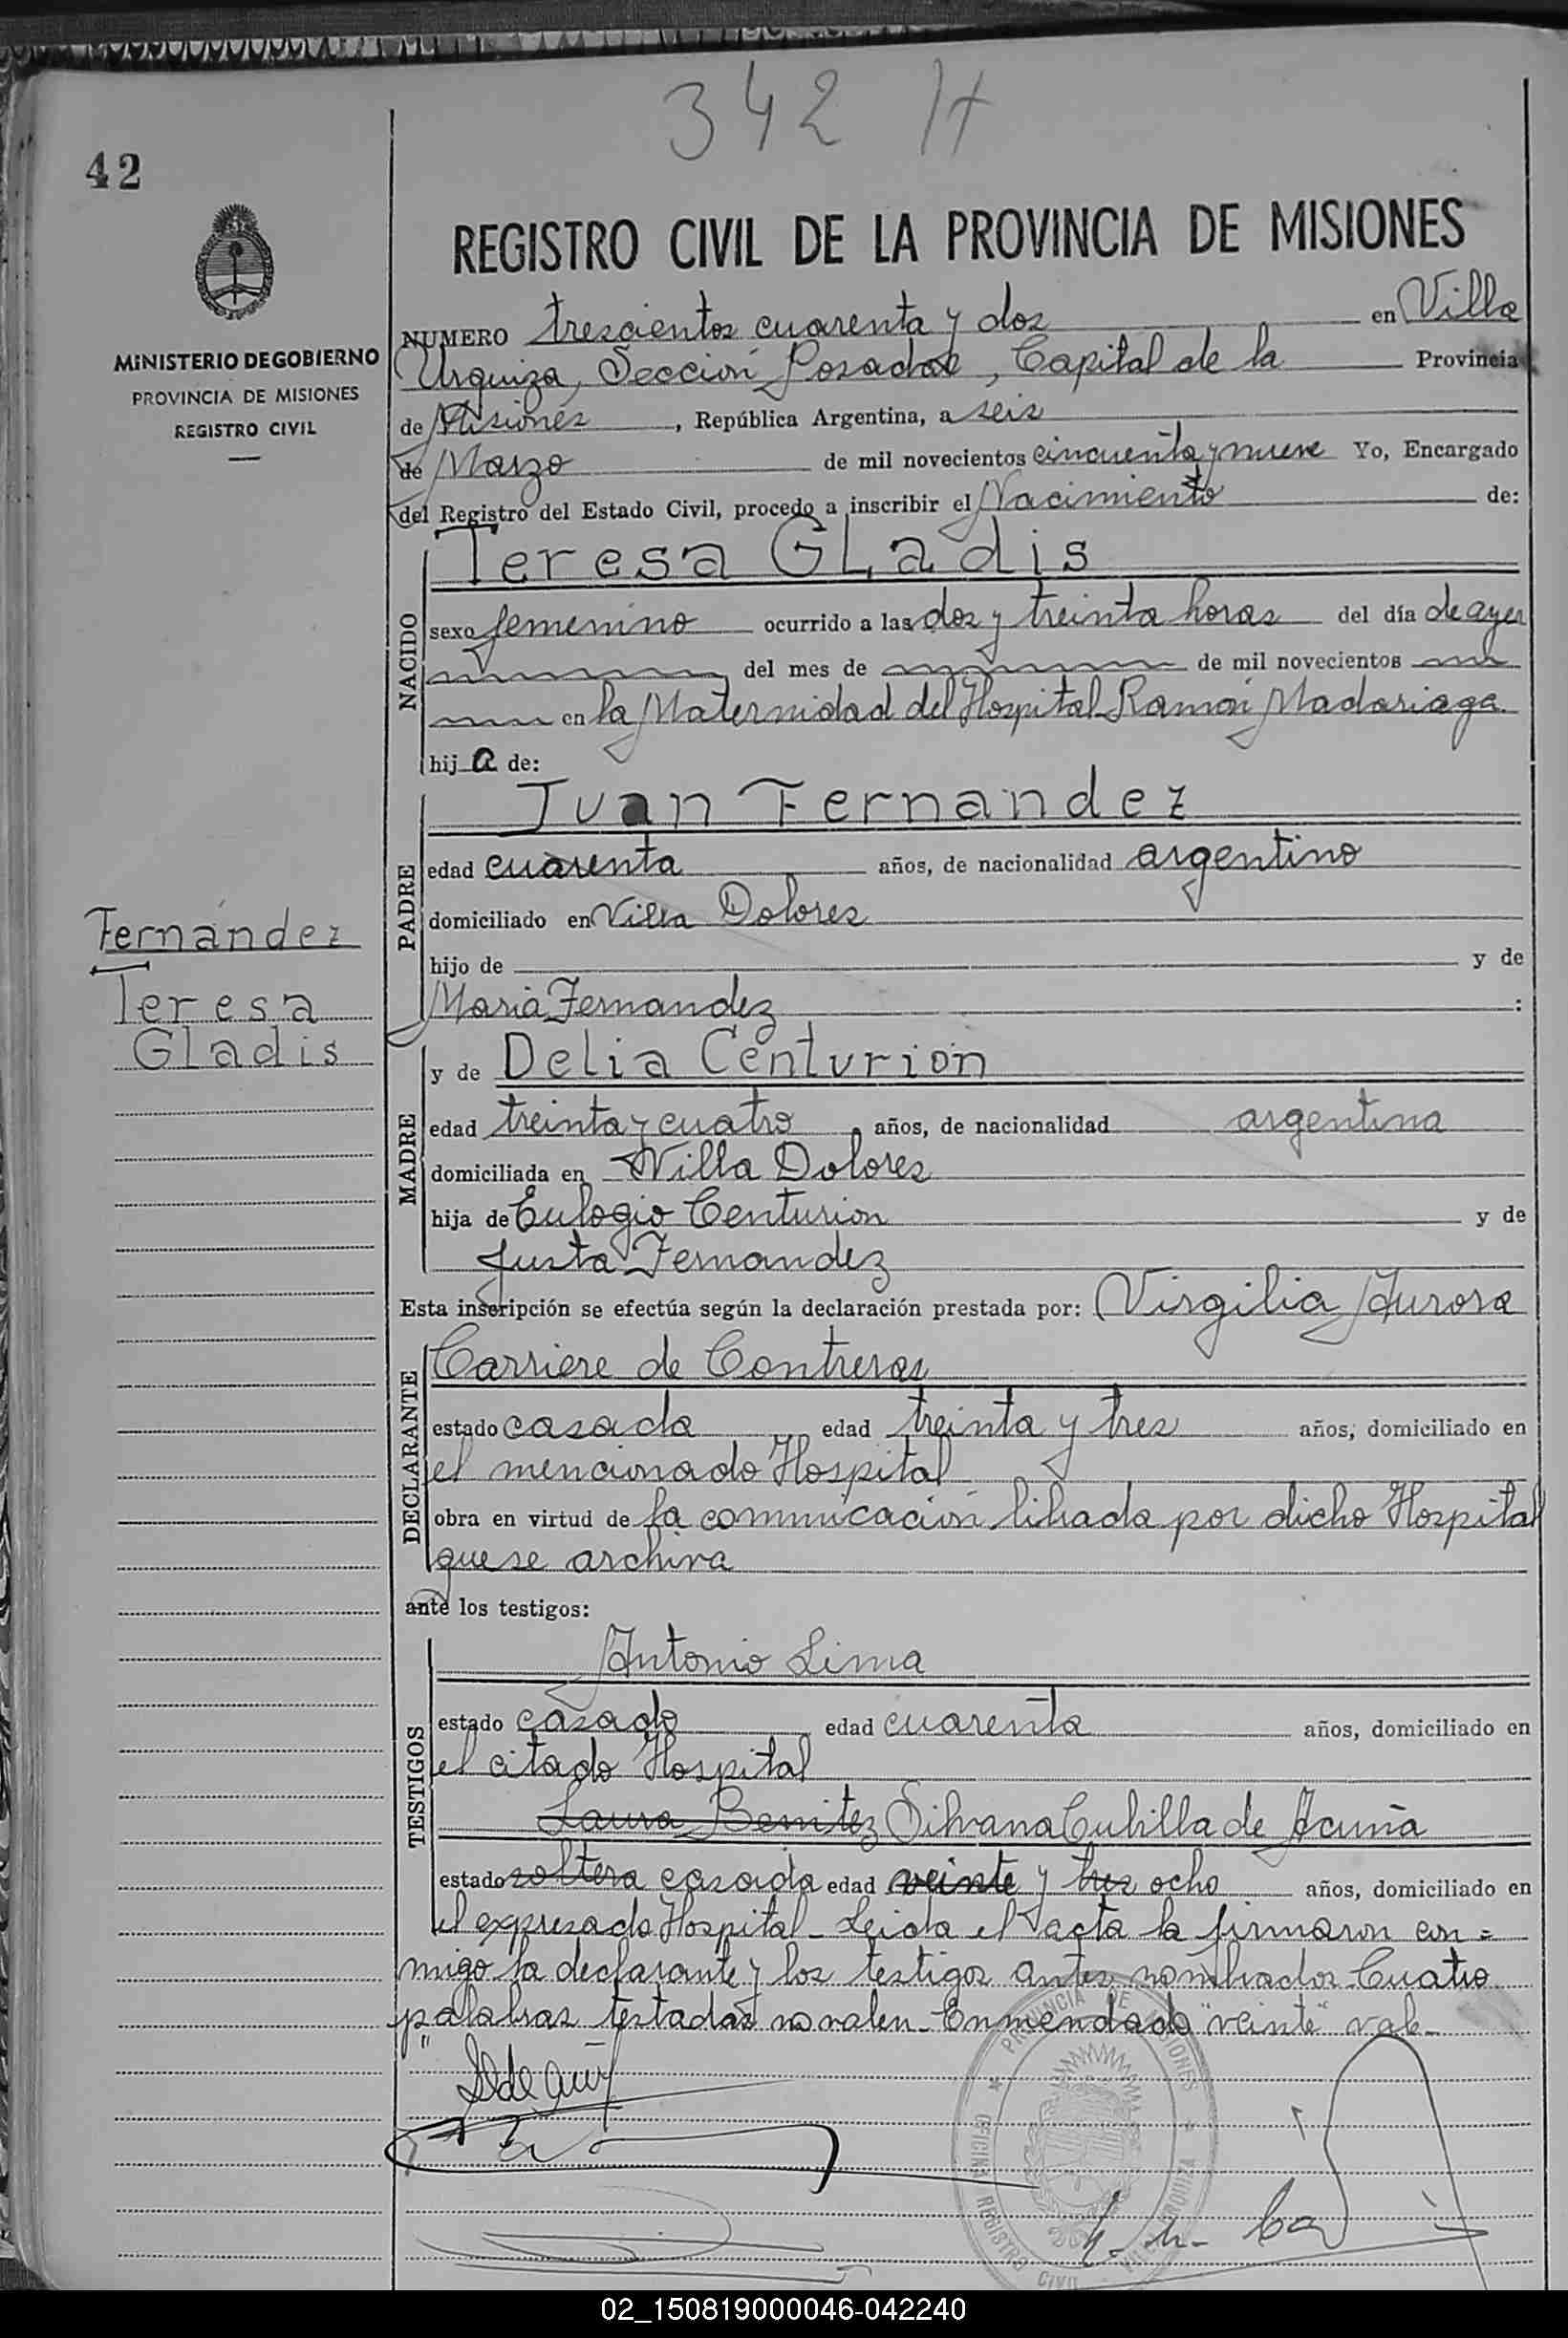 342 H
42
REGISTRO CIVIL DE LA PROVINCIA DE MISIONES
MINISTERIO DE GOBIERNO
PROVINCIA DE MISIONES
REGISTRO CIVIL
NUMERO trescientos cuarenta y dos en Villa
Urquiza, Sección Posadas, Capital de la Provincia
de Misiones, República Argentina, a seis
de Marzo de mil novecientos cincuenta y nueve Yo, Encargado
del Registro del Estado Civil, procedo a inscribir el Nacimiento de:
NACIDO
Teresa GLadis
sexo femenino ocurrido a las dos y treinta horas del día de ayer
del mes de de mil novecientos
en la Maternidad del Hospital Ramón Madariaga
hija de:
PADRE
Juan Fernandez
edad cuarenta años, de nacionalidad argentino
domiciliado en Villa Dolores
hijo de y de
Maria Fernandez :
Fernández
Teresa
Gladis
MADRE
y de Delia Centurión
edad treinta y cuatro años, de nacionalidad argentina
domiciliada en Villa Dolores
hija de Eulogio Centurion y de
Justa Fernandez
Esta inscripción se efectúa según la declaración prestada por: Virgilia Aurora
DECLARANTE
Carriere de Contreras
estado casada edad treinta y tres años, domiciliado en
el mencionado Hospital
obra en virtud de la comunicación librada por dicho Hospital
que se archiva
ante los testigos:
TESTIGOS
Antonio Lima
estado casado edad cuarenta años, domiciliado en
el citado Hospital
Laura Benitez Silvana Cubilla de Acuña
estado soltera casada edad veinte y tres ocho años, domiciliado en
el expresado Hospital - Leida el acta la firmaron con=
migo la declarante y los testigos antes nombrados. Cuatro
palabras testadas no valen - Enmendado "veinte" vale -
PROVINCIA DE MISIONES
OFICINA REGISTRO CIVIL VILLA URQUIZA
02_150819000046-042240